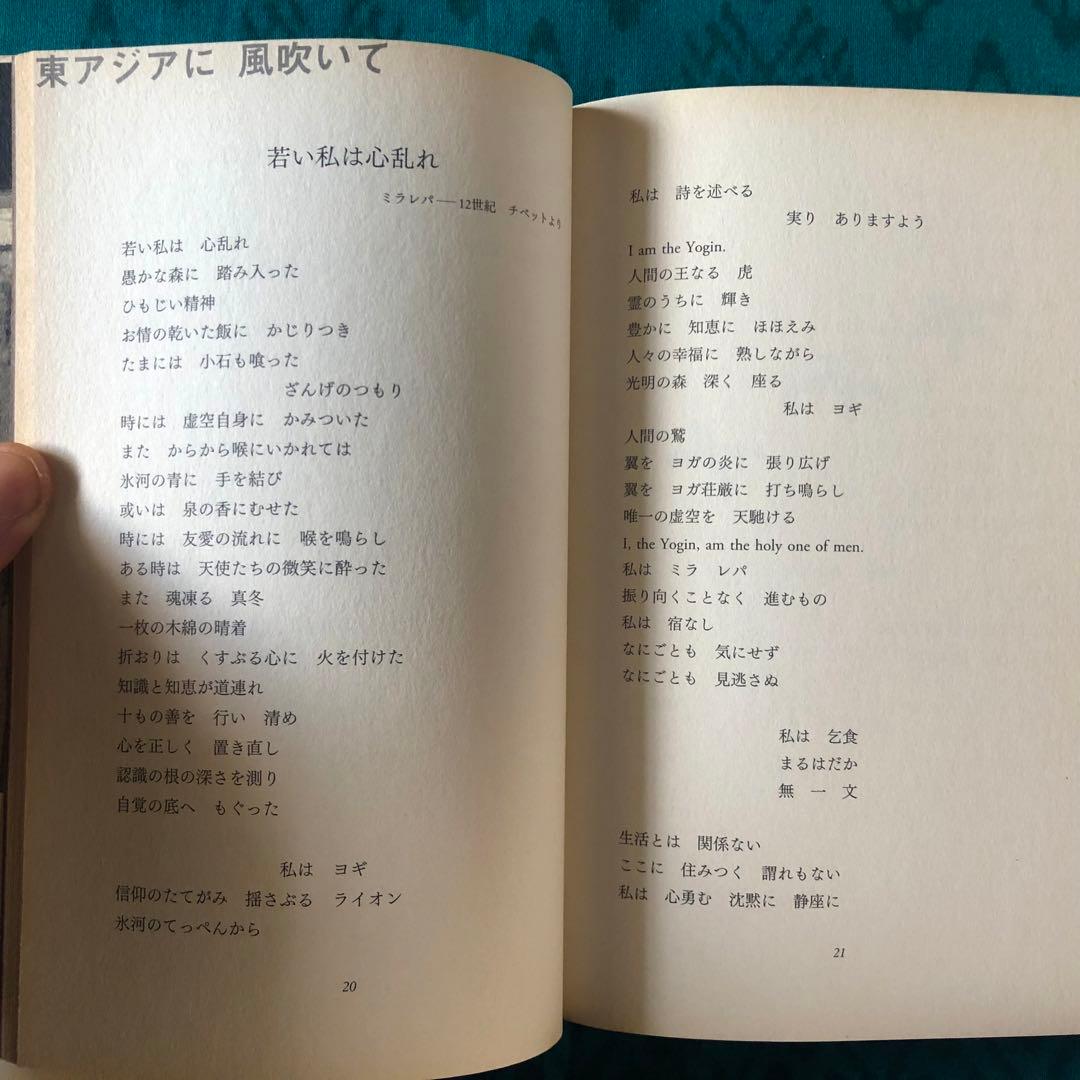 東アジアに 風吹いて
若い私は心乱れ
ミラレパ──12世紀　チベットより
若い私は　心乱れ
愚かな森に　踏み入った
ひもじい精神
お情の乾いた飯に　かじりつき
たまには　小石も喰った
ざんげのつもり
時には　虚空自身に　かみついた
また　からから喉にいかれては
氷河の青に　手を結び
或いは　泉の香にむせた
時には　友愛の流れに　喉を鳴らし
ある時は　天使たちの微笑に酔った
また　魂凍る　真冬
一枚の木綿の晴着
折おりは　くすぶる心に　火を付けた
知識と知恵が道連れ
十もの善を　行い　清め
心を正しく　置き直し
認識の根の深さを測り
自覚の底へ　もぐった
私は　ヨギ
信仰のたてがみ　揺さぶる　ライオン
氷河のてっぺんから
20
私は　詩を述べる
実り　ありますよう
I am the Yogin.
人間の王なる　虎
霊のうちに　輝き
豊かに　知恵に　ほほえみ
人々の幸福に　熟しながら
光明の森　深く　座る
私は　ヨギ
人間の鷲
翼を　ヨガの炎に　張り広げ
翼を　ヨガ荘厳に　打ち鳴らし
唯一の虚空を　天馳ける
I, the Yogin, am the holy one of men.
私は　ミラ　レパ
振り向くことなく　進むもの
私は　宿なし
なにごとも　気にせず
なにごとも　見逃さぬ
私は　乞食
まるはだか
無　一　文
生活とは　関係ない
ここに　住みつく　謂れもない
私は　心勇む　沈黙に　静座に
21